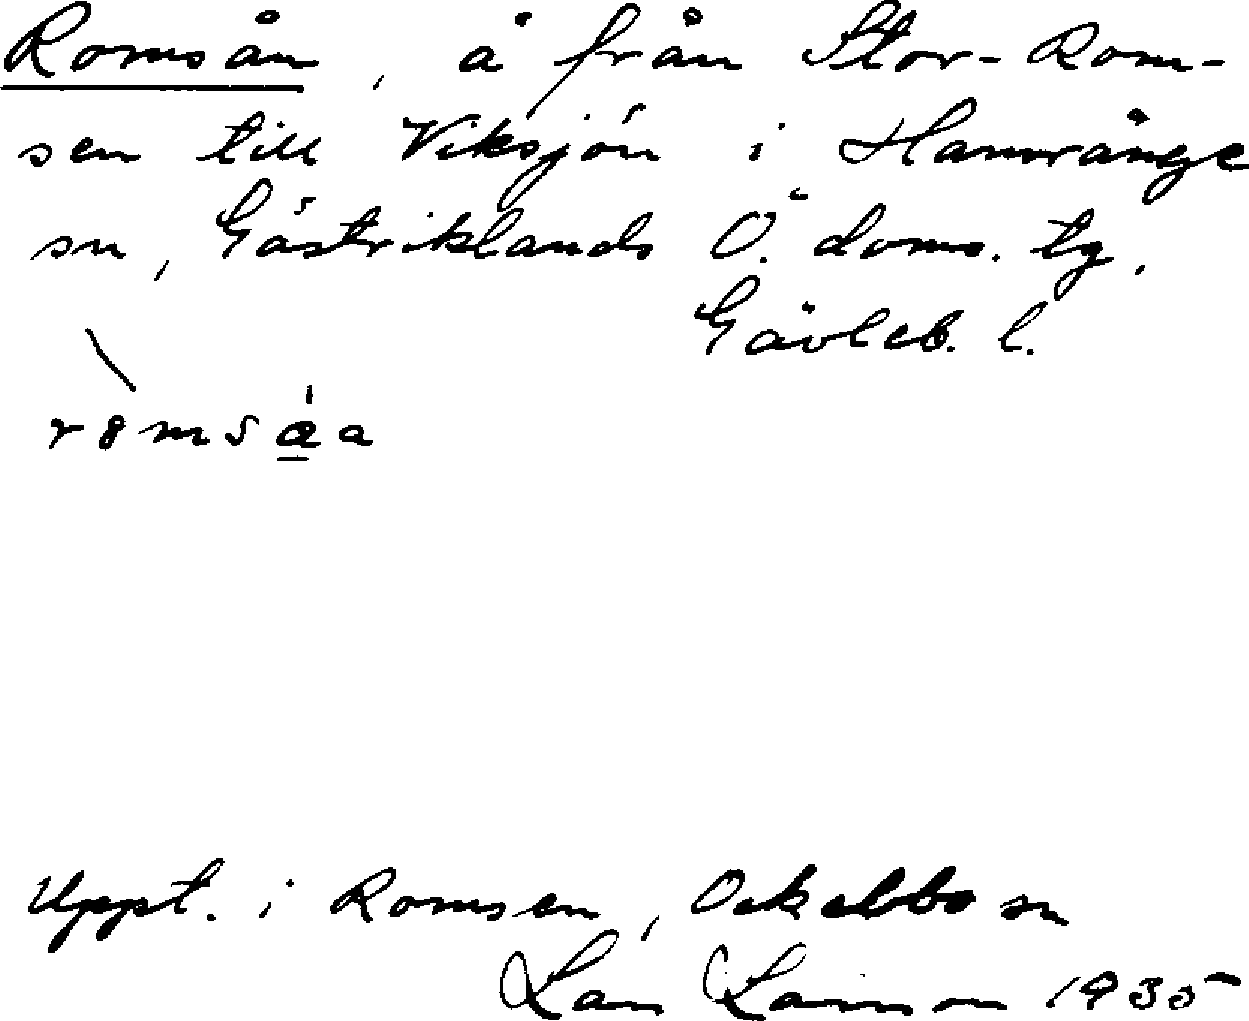 Romsån, å från Stor-Rom-
sen till Viksjön i Hamrånge
sn, Gästriklands Ö. doms. tg,
Gävleb. l.
Uppt. i Romsen, Ockelbo sn
1935